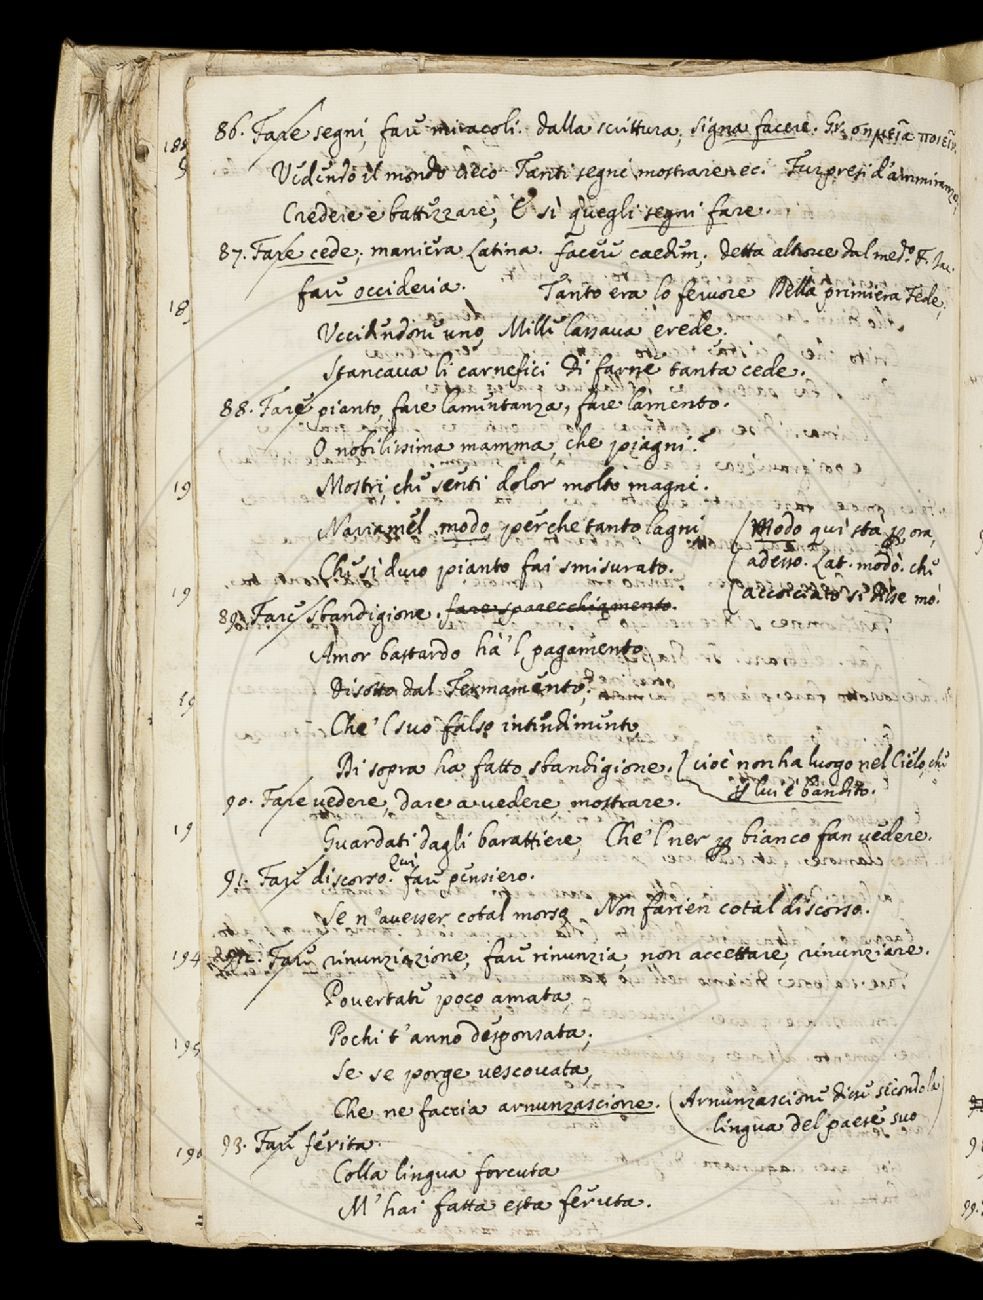 86. Fare segni, fare miracoli. dalla scrittura, signa facere. Gr. σημεῖα ποιεῖν.
Vedendo il mondo cieco Tanti segni mostrare eci Furpresi d'ammiranza,
Credere e battizzare, E sì quegli segni fare.
87. Fare cede, maniera Latina. facere caedem, detta altrove dal med.º F. Jac.
fare occideria. Tanto era lo fervore Della primiera Fede,
Uccidendone uno, Mille lassava erede,
Stancava li carnefici Di farne tanta cede.
88. Fare pianto, fare lamentanza, fare lamento.
O nobilissima mamma, che piagni?
Mostri, che senti dolor molto magni.
Narramel modo, perche tanto lagni (Modo qui sta per ora,
Che sì duro pianto fai smisurato. (adesso. Lat. modò. che
(accorciato si disse mo.
89. Fare sbandigione. fare sparecchiamento.
Amor bastardo hà 'l pagamento
Disotto dal Fermamento;
Che 'l suo falso intendimento
Di sopra ha fatto sbandigione. (cioè non ha luogo nel Cielo, che
per lui è bandito.
90. Fare vedere, dare a vedere, mostrare.
Guardati dagli barattiere, Che 'l ner per bianco fan vedere.
91. Fare discorso. Qui fare pensiero.
Se n'avesser cotal morso Non farien cotal discorso.
92. Fare rinunziazione, fare rinunzia, non accettare, rinunziare.
Povertate poco amata
Pochi t'anno desponsata;
Se se porge vescovata,
Che ne faccia arnunzascione. (Arnunzascione dice secondo la
lingua del paese suo)
93. Fare ferita.
Colla lingua forcuta
M'hai fatta esta feruta.